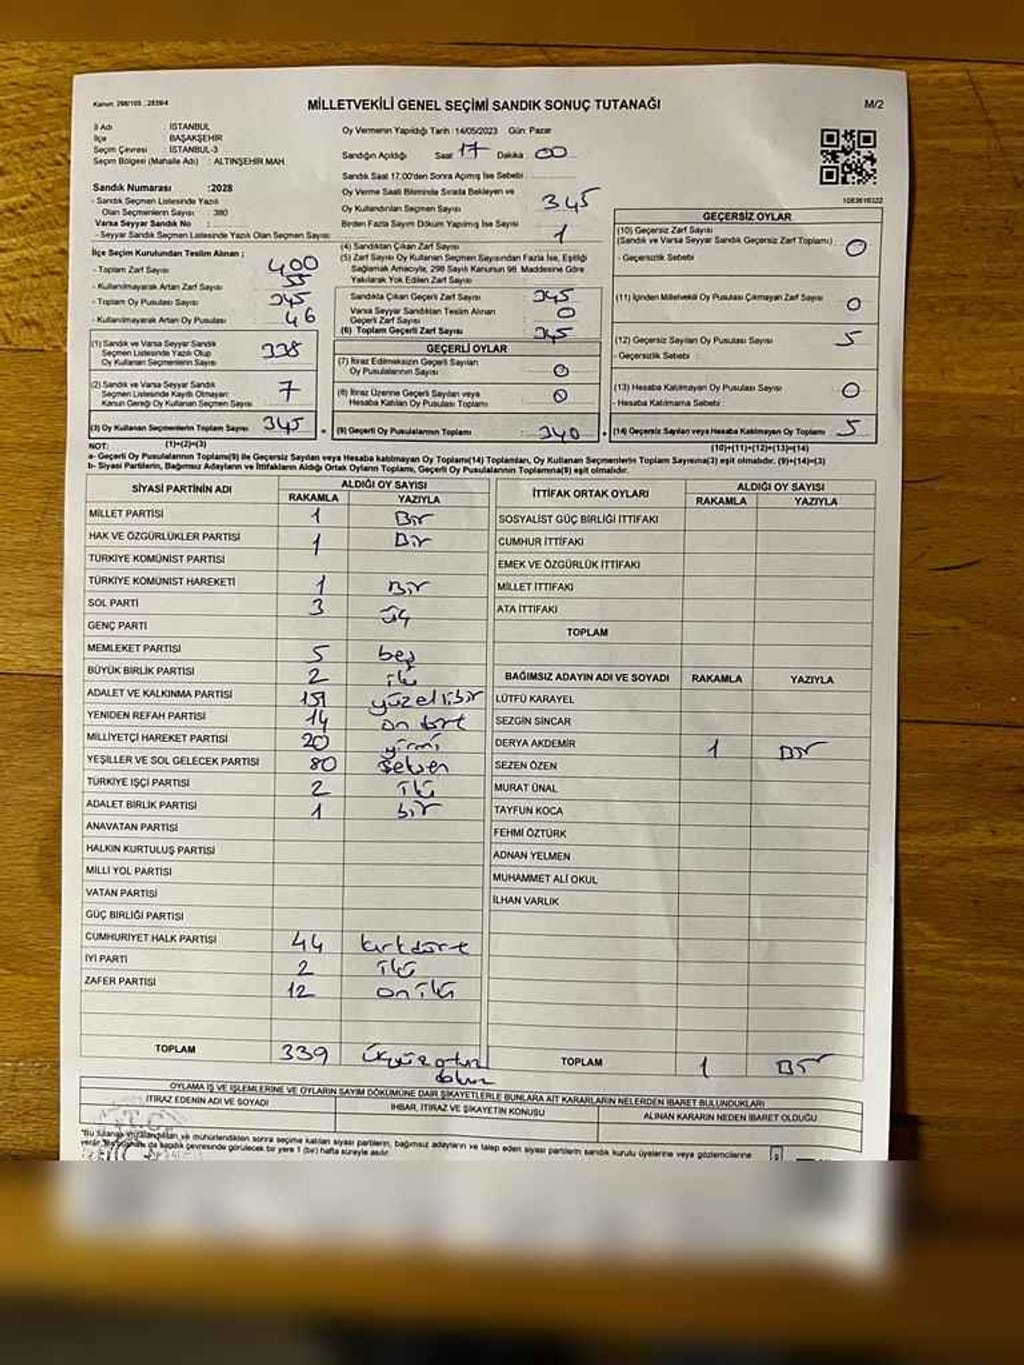 Kanun: 298/105 , 2839/4
MİLLETVEKİLİ GENEL SEÇİMİ SANDIK SONUÇ TUTANAĞI
M/2
İl Adı : İSTANBUL
İlçe : BAŞAKŞEHİR
Seçim Çevresi : İSTANBUL-3
Seçim Bölgesi (Mahalle Adı) : ALTINŞEHİR MAH.
Oy Vermenin Yapıldığı Tarih :14/05/2023 Gün: Pazar
Sandığın Açıldığı Saat 17 Dakika 00
Sandık Saat 17.00'den Sonra Açılmış İse Sebebi :
Sandık Numarası :2028
- Sandık Seçmen Listesinde Yazılı
Olan Seçmenlerin Sayısı : 380
Varsa Seyyar Sandık No :
- Seyyar Sandık Seçmen Listesinde Yazılı Olan Seçmen Sayısı:
Oy Verme Saati Bitiminde Sırada Bekleyen ve
Oy Kullandırılan Seçmen Sayısı 345
Birden Fazla Sayım Döküm Yapılmış İse Sayısı 1
İlçe Seçim Kurulundan Teslim Alınan ;
- Toplam Zarf Sayısı : 400
- Kullanılmayarak Artan Zarf Sayısı : 55
- Toplam Oy Pusulası Sayısı : 345
- Kullanılmayarak Artan Oy Pusulası : 46
(1) Sandık ve Varsa Seyyar Sandık
Seçmen Listesinde Yazılı Olup
Oy Kullanan Seçmenlerin Sayısı : 338
(2) Sandık ve Varsa Seyyar Sandık
Seçmen Listesinde Kayıtlı Olmayan
Kanun Gereği Oy Kullanan Seçmen Sayısı : 7
(3) Oy Kullanan Seçmenlerin Toplam Sayısı : 345
(1)+(2)=(3)
(4) Sandıktan Çıkan Zarf Sayısı
(5) Zarf Sayısı Oy Kullanan Seçmen Sayısından Fazla İse, Eşitliği
Sağlamak Amacıyla; 298 Sayılı Kanunun 98. Maddesine Göre
Yakılarak Yok Edilen Zarf Sayısı
Sandıkta Çıkan Geçerli Zarf Sayısı : 345
Varsa Seyyar Sandıktan Teslim Alınan
Geçerli Zarf Sayısı : 0
(6) Toplam Geçerli Zarf Sayısı : 345
GEÇERLİ OYLAR
(7) İtiraz Edilmeksizin Geçerli Sayılan
Oy Pusulalarının Sayısı : 0
(8) İtiraz Üzerine Geçerli Sayılan veya
Hesaba Katılan Oy Pusulası Toplamı : 0
(9) Geçerli Oy Pusulalarının Toplamı : 340
1083616322
GEÇERSİZ OYLAR
(10) Geçersiz Zarf Sayısı
(Sandık ve Varsa Seyyar Sandık Geçersiz Zarf Toplamı) : 0
- Geçersizlik Sebebi :
(11) İçinden Milletvekili Oy Pusulası Çıkmayan Zarf Sayısı : 0
(12) Geçersiz Sayılan Oy Pusulası Sayısı : 5
- Geçersizlik Sebebi :
(13) Hesaba Katılmayan Oy Pusulası Sayısı : 0
- Hesaba Katılmama Sebebi :
(14) Geçersiz Sayılan veya Hesaba Katılmayan Oy Toplamı : 5
(10)+(11)+(12)+(13)=(14)
NOT:
a- Geçerli Oy Pusulalarının Toplamı(9) ile Geçersiz Sayılan veya Hesaba Katılmayan Oy Pusulası Toplamı(14) Toplamları, Oy Kullanan Seçmenlerin Toplam Sayısına(3) eşit olmalıdır. (9)+(14)=(3)
b- Siyasi Partilerin, Bağımsız Adayların ve İttifakların Aldığı Ortak Oyların Toplamı, Geçerli Oy Pusulalarının Toplamına(9) eşit olmalıdır.
SİYASİ PARTİNİN ADI ALDIĞI OY SAYISI
RAKAMLA YAZIYLA
MİLLET PARTİSİ 1 Bir
HAK VE ÖZGÜRLÜKLER PARTİSİ 1 Bir
TÜRKİYE KOMÜNİST PARTİSİ
TÜRKİYE KOMÜNİST HAREKETİ 1 Bir
SOL PARTİ 3 üç
GENÇ PARTİ
MEMLEKET PARTİSİ 5 beş
BÜYÜK BİRLİK PARTİSİ 2 iki
ADALET VE KALKINMA PARTİSİ 151 yüzellibir
YENİDEN REFAH PARTİSİ 14 on dört
MİLLİYETÇİ HAREKET PARTİSİ 20 yirmi
YEŞİLLER VE SOL GELECEK PARTİSİ 80 Seksen
TÜRKİYE İŞÇİ PARTİSİ 2 iki
ADALET BİRLİK PARTİSİ 1 bir
ANAVATAN PARTİSİ
HALKIN KURTULUŞ PARTİSİ
MİLLİ YOL PARTİSİ
VATAN PARTİSİ
GÜÇ BİRLİĞİ PARTİSİ
CUMHURİYET HALK PARTİSİ 44 kırkdört
İYİ PARTİ 2 iki
ZAFER PARTİSİ 12 oniki
TOPLAM 339 üçyüzotuz
dokuz
İTTİFAK ORTAK OYLARI ALDIĞI OY SAYISI
RAKAMLA YAZIYLA
SOSYALİST GÜÇ BİRLİĞİ İTTİFAKI
CUMHUR İTTİFAKI
EMEK VE ÖZGÜRLÜK İTTİFAKI
MİLLET İTTİFAKI
ATA İTTİFAKI
TOPLAM
BAĞIMSIZ ADAYIN ADI VE SOYADI RAKAMLA YAZIYLA
LÜTFÜ KARAYEL
SEZGİN SİNCAR
DERYA AKDEMİR 1 Bir
SEZEN ÖZEN
MURAT ÜNAL
TAYFUN KOCA
FEHMİ ÖZTÜRK
ADNAN YELMEN
MUHAMMET ALİ OKUL
İLHAN VARLIK
TOPLAM 1 Bir
OYLAMA İŞ VE İŞLEMLERİNE VE OYLARIN SAYIM DÖKÜMÜNE DAİR ŞİKAYETLERLE BUNLARA AİT KARARLARIN NELERDEN İBARET BULUNDUKLARI
İTİRAZ EDENİN ADI VE SOYADI
İHBAR, İTİRAZ VE ŞİKAYETİN KONUSU
ALINAN KARARIN NEDEN İBARET OLDUĞU
T.C.
"Bu tutanak imzalandıktan ve mühürlendikten sonra seçime katılan siyasi partilerin, bağımsız adayların ve talep eden siyasi partilerin sandık kurulu üyelerine veya gözlemcilerine
sandık çevresinde görülecek bir yere 1 (bir) hafta süreyle asılır.